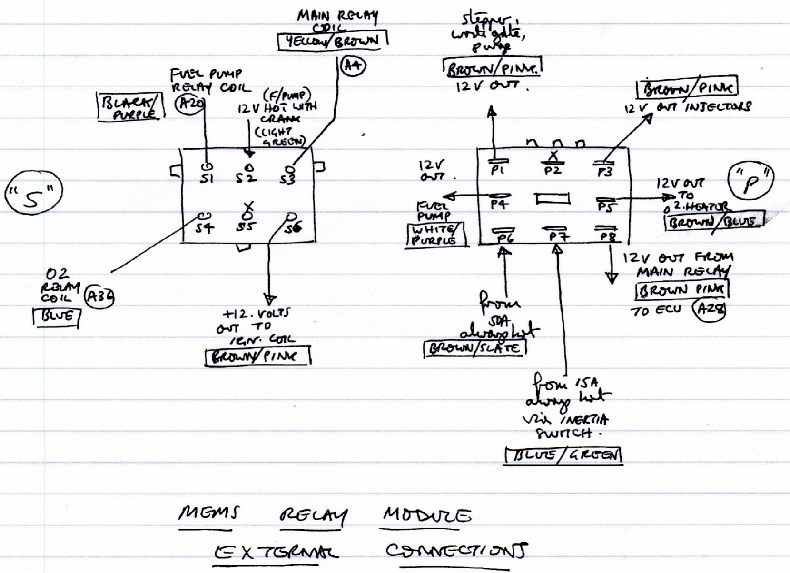 MAIN RELAY
COIL
YELLOW/BROWN
A4
FUEL PUMP
RELAY COIL
A20
BLACK/
PURPLE
(F/PUMP)
12V HOT WITH
CRANK
(LIGHT
GREEN)
"S"
S1 S2 S3
X
S4 S5 S6
O2
RELAY
COIL A36
BLUE
+12.VOLTS
OUT TO
IGN. COIL
BROWN/PINK
stepper,
wastegate,
purge
BROWN/PINK
12V OUT.
BROWN/PINK
12V OUT INJECTORS
X
P1 P2 P3
12V
OUT.
FUEL
PUMP
WHITE/
PURPLE
P4 P5
12V OUT
TO
O2.HEATER
BROWN/BLUE
"P"
P6 P7 P8
12V OUT FROM
MAIN RELAY
BROWN PINK
TO ECU A28
from
50A
always hot
BROWN/SLATE
from 15A
always hot
via INERTIA
SWITCH.
BLUE/GREEN
MEMS RELAY MODULE
EXTERNAL CONNECTIONS